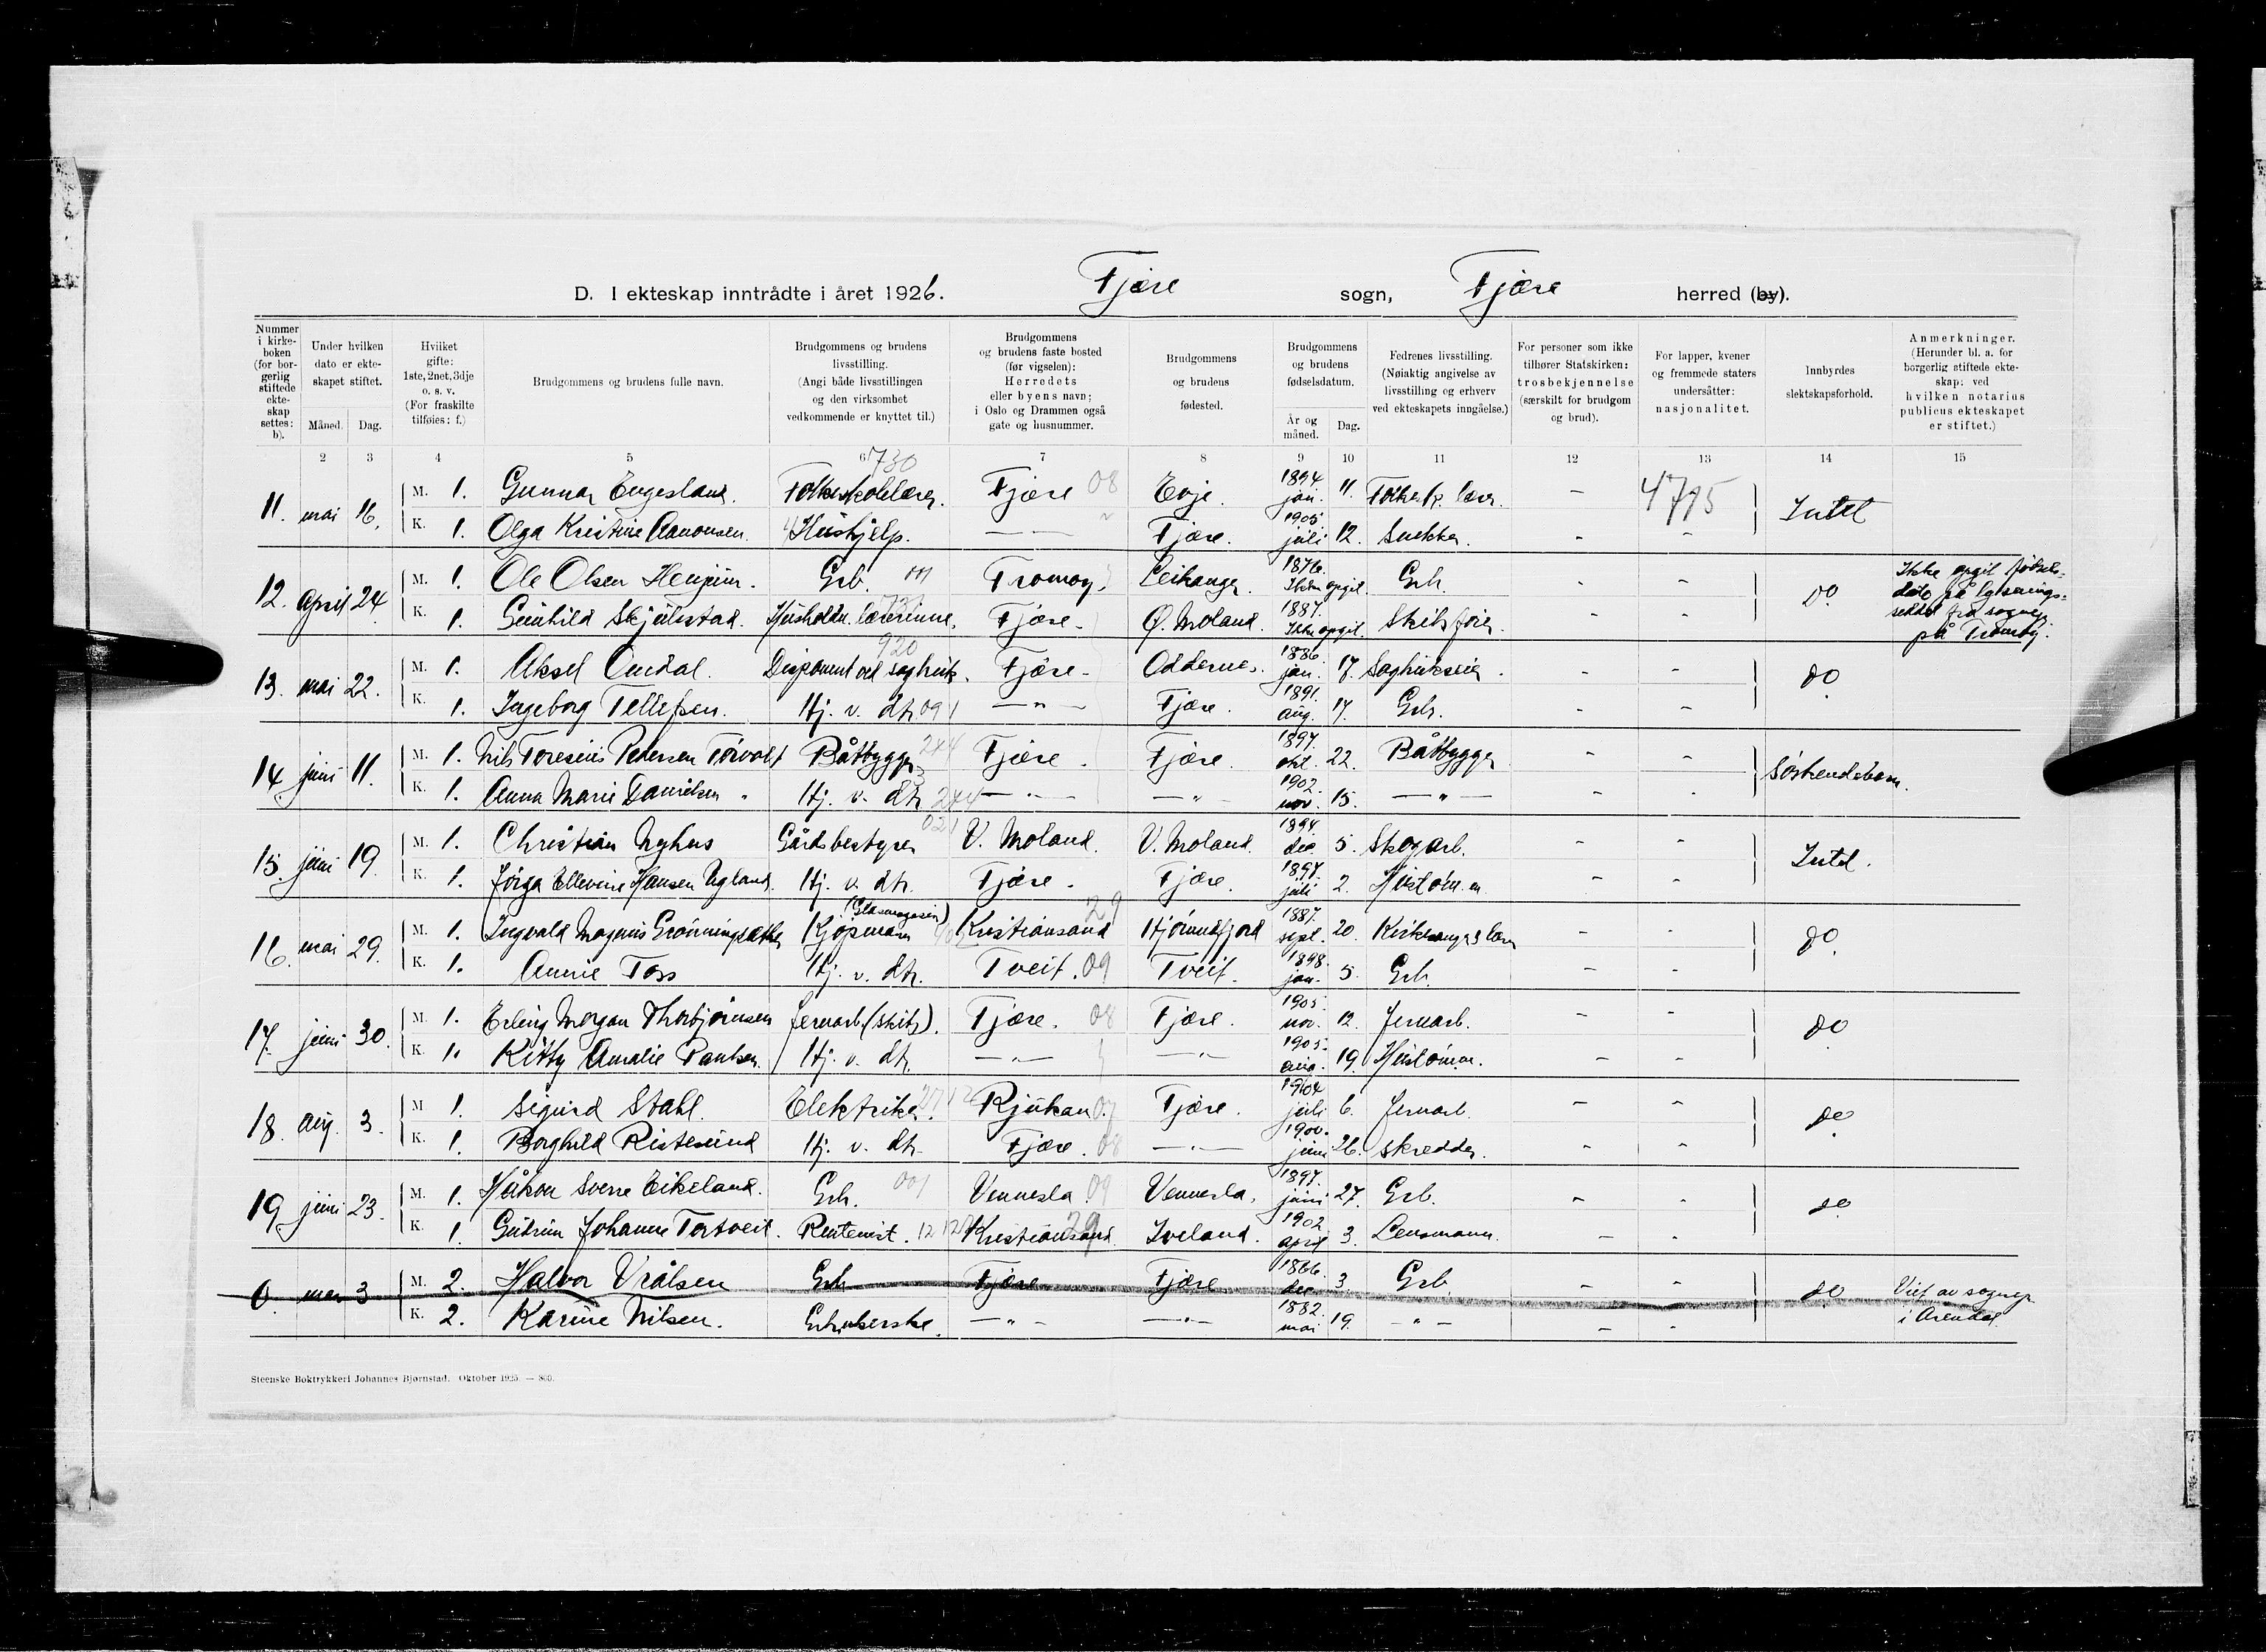 D. I ekteskap inntrådte i året 1926. Fjære sogn, Fjære herred (by).
Nummer i kirkeboken (for borgerlig stiftede ekteskap settes: b).
Under hvilken dato er ekteskapet stiftet.
Måned. Dag.
Hvilket gifte: 1ste, 2net, 3dje o. s. v. (For fraskilte tilføies: f.)
Brudgommens og brudens fulle navn.
Brudgommens og brudens livsstilling. (Angi både livsstillingen og den virksomhet vedkommende er knyttet til.)
Brudgommens og brudens faste bosted (før vigselen): Herredets eller byens navn; i Oslo og Drammen også gate og husnummer.
Brudgommens og brudens fødested.
Brudgommens og brudens fødselsdatum.
År og måned. Dag.
Fedrenes livsstilling. (Nøiaktig angivelse av livsstilling og erhverv ved ekteskapets inngåelse.)
For personer som ikke tilhører Statskirken: trosbekjennelse (særskilt for brudgom og brud).
For lapper, kvener og fremmede staters undersåtter: nasjonalitet.
Innbyrdes slektskapsforhold.
Anmerkninger. (Herunder bl. a. for borgerlig stiftede ekteskap: ved hvilken notarius publicus ekteskapet er stiftet.)
2 3 4 5 6 7 8 9 10 11 12 13 14 15
730
11. mai 16. M. 1. Gunnar Eugesland. Folkeskolelærer. Fjære 08 Evje. 1894 jan. 11. Folkesk. lærer. - 4795 Intet
K. 1. Olga Kristine Aanonsen. Hushjelp. — Fjære. 1905 juli 12. Snekker. - -
12. April 24. M. 1. Ole Olsen Grb. Tromøy. Leikanger. 1876. Ikke opgit. Grb. - - do Ikke opgit fødsels-
dato på lysnings-
seddel fra sognepr.
på Tromøy.
K. 1. Gunhild Skjulstad. Husholdn. lærerinne. Fjære. Ø. Moland. 1887. Ikke opgit. Skibsfører. - -
920
13. mai 22. M. 1. Aksel Omdal. Disponent ved sagbruk. Fjære. Oddernes. 1886. jan. 17. Sagbrukseier. - - do
K. 1. Ingeborg Tellefsen. Hj. v. dtr. 091 — " — Fjære. 1891. aug. 17. Grb. - -
14. juni 11. M. 1. Nils Teresius Pedersen Båtbygger 244 Fjære. Fjære. 1897. okt. 22. Båtbygger - - Søskendebarn.
K. 1. Anna Marie Danielsen. Hj. v. dtr. 244 — " — — " — 1902. nov. 15. — " — - -
15. juni 19. M. 1. Christian Nyhus Gårdsbestyrer 021 V. Moland. V. Moland. 1894. dec. 5. Skogarb. - - Intet.
K. 1. Hansen Ugland. Hj. v. dtr. Fjære. Fjære. 1897. juli 2. - -
16. mai 29. M. 1. Ingvald Magnus Grønningsæther Kjøpmann (Glasmagasin) Kristiansand 29 Hjørundfjord 1887. sept. 20. Kirkesanger & lærer - - do
K. 1. Annie Foss Hj. v. dtr. Tveit. 09 Tveit. 1898. jan. 5. Grb. - -
17. juni 30. M. 1. Erling Morgan Thorbjørnsen Jernarb. (skibs). Fjære. 08 Fjære. 1905 nov. 12. Jernarb. - - do
K. 1. Kitty Amalie Paulsen. Hj. v. dtr. — " — — " — 1905. aug. 19. - -
18. aug. 3. M. 1. Sigurd Stahl. Elektriker. Rjukan 07 Fjære. 1904 juli 6. Jernarb. - - do
K. 1. Borghild Ristesund Hj. v. dtr. Fjære. 08 — " — 1900. juni 26. Skredder. - -
19 juni 23. M. 1. Håkon Sverre Eikeland. Grb. 001 Vennesla 09 Vennesla. 1897. juni 27. Grb. - - do
K. 1. Gudrun Johanne Tortveit. Kristiansand. 29 Iveland. 1902 april 3. Lensmann. - -
0. mars 3 M. 2. Halvor Vrålsen Grb Fjære Fjære 1866. dec. 3. Grb. - - do Viet av sognepr.
i Arendal.
K. 2. Karine Nilsen. — " — — " — 1882. mai 19. — " — - -
Steenske Boktrykkeri Johannes Bjørnstad. Oktober 1925. — 800.